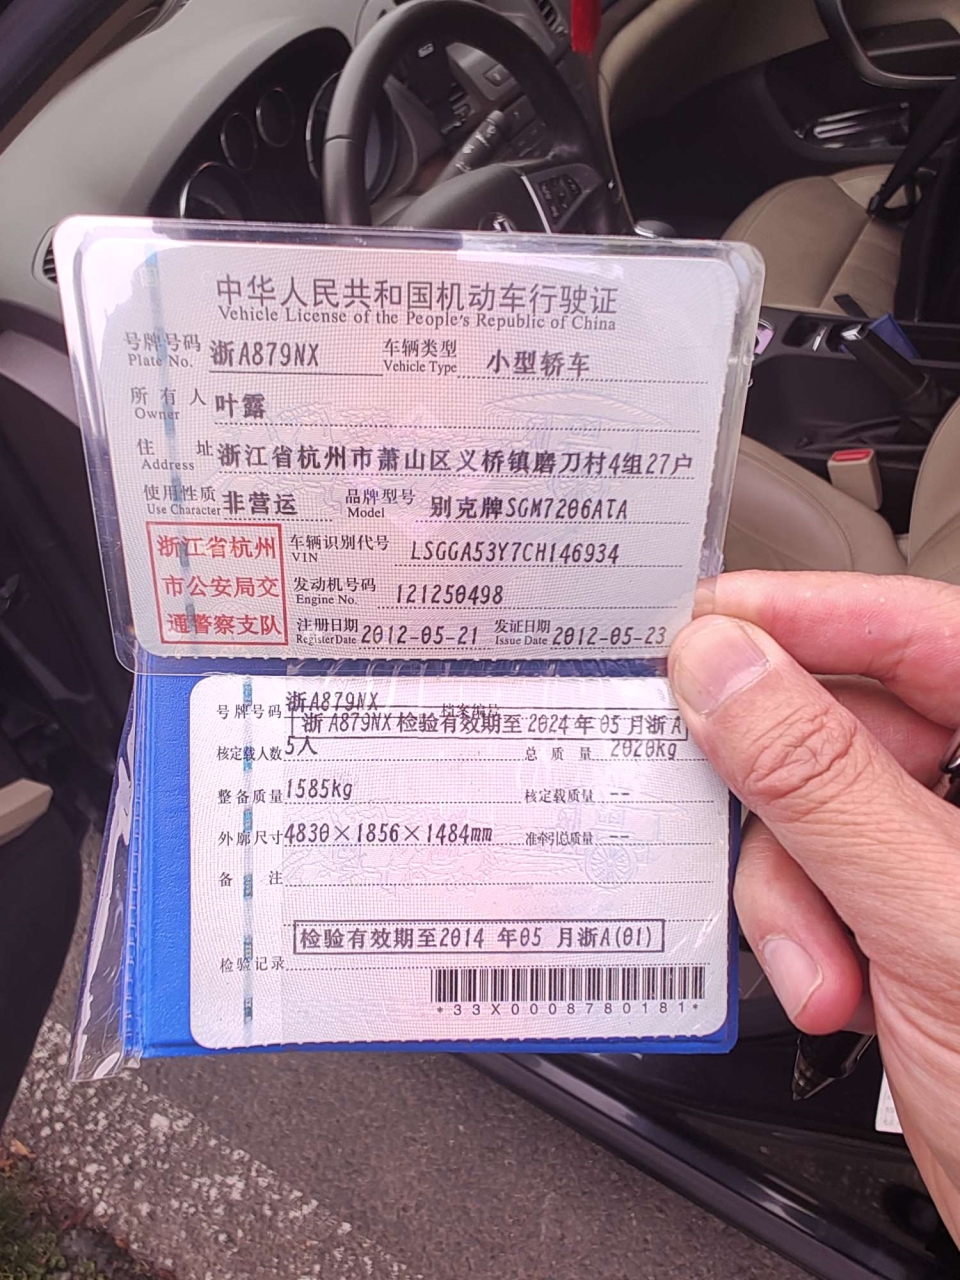 中华人民共和国机动车行驶证
Vehicle License of the People's Republic of China
号牌号码 浙A879NX 车辆类型 小型轿车
Plate No. Vehicle Type
所有人 叶露
Owner
住址 浙江省杭州市萧山区义桥镇磨刀村4组27户
Address
使用性质 非营运 品牌型号 别克牌SGM7206ATA
Use Character Model
浙江省杭州
市公安局交
通警察支队
车辆识别代号 LSGGA53Y7CH146934
VIN
发动机号码 121250498
Engine No.
注册日期 2012-05-21 发证日期 2012-05-23
Register Date Issue Date
号牌号码 浙A879NX 档案编号
浙A879NX检验有效期至2024年05月浙A
核定载人数 5人 总质量 2020kg
整备质量 1585kg 核定载质量 --
外廓尺寸 4830×1856×1484mm 准牵引总质量 --
备注
检验有效期至2014 年05 月浙A(01)
检验记录
*33X0008780181*